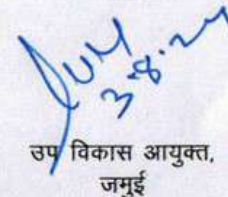 3.8.24
उप विकास आयुक्त,
जमुई